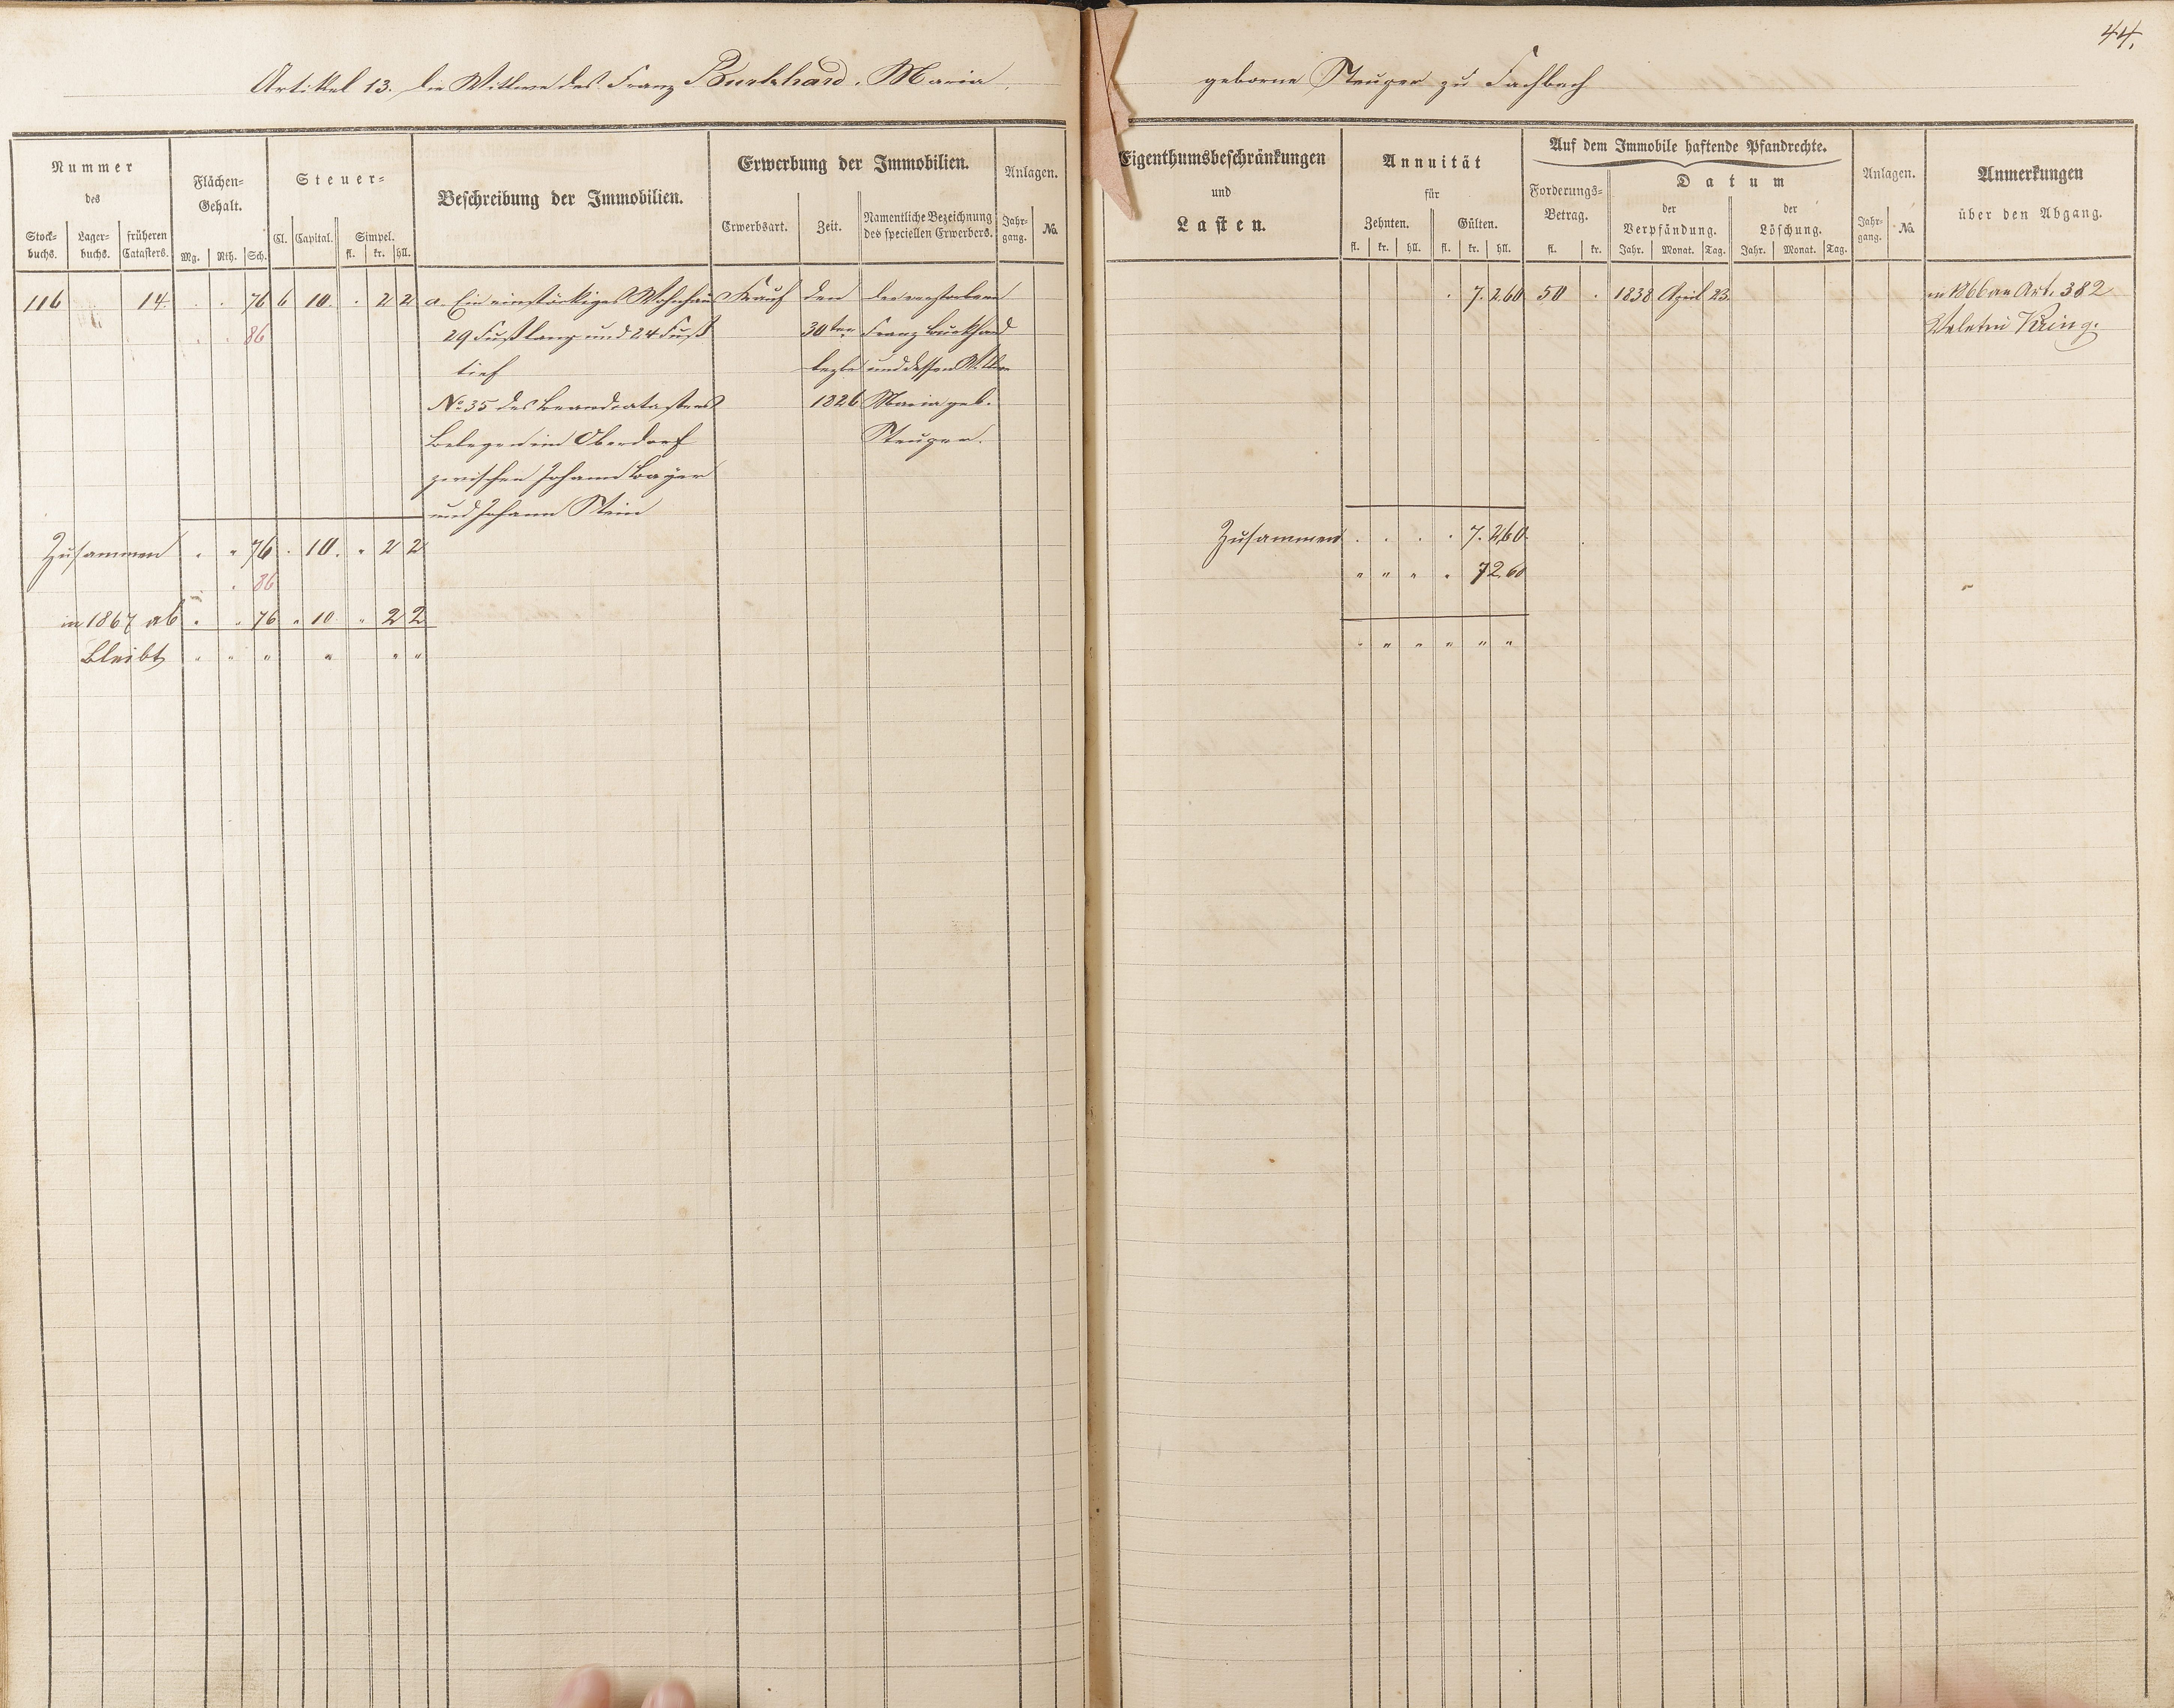 44.
Artikel 13. die Wittwe des Franz Burkhard, Maria geborne Steuper zu Fachbach
Nummer
des
Stock-buchs. Lager-buchs. früheren Catasters.
Flächen-Gehalt.
Mg. Rth. Sch.
Steuer-
Cl. Capital. Simpel.
fl. kr. hll.
Beschreibung der Immobilien.
Erwerbung der Immobilien.
Erwerbsart. Zeit. Namentliche Bezeichnung des speciellen Erwerbers.
Anlagen.
Jahr-gang. No.
Eigenthumsbeschränkungen
und
Lasten.
Annuität
für
Zehnten. Gülten.
fl. kr. hll. fl. kr. hll.
Auf dem Immobile haftende Pfandrechte.
Forderungs-Betrag.
fl. kr.
Datum
der Verpfändung. der Löschung.
Jahr. Monat. Tag. Jahr. Monat. Tag.
Anlagen.
Jahr-gang. No.
Anmerkungen
über den Abgang.
116 14 . . 76 6 10 . 2 2 a. Ein einstöckiges Wohnhaus Kauf den der verstorbene
. . 86 29 Fuß lang und 24 Fuß 30ten Franz Burkhard
tief und dessen Wittwe
No 35 des Brandcatasters 1826 Maria geb.
Belegen im Oberdorf Steuper.
zwischen Johann Bayer
und Johann Stein
Zusammen . . 76 . 10 . . 2 2
. 86
in 1867 ab . . 76 " 10 " 2 2
Bleibt " " " " " "
. 7. 2.60 50 . 1838 April 23. in 1866 an Art. 382
Kring.
Zusammen . . . . 7. 2.60
" " " " 7 2.60
" " " " " "